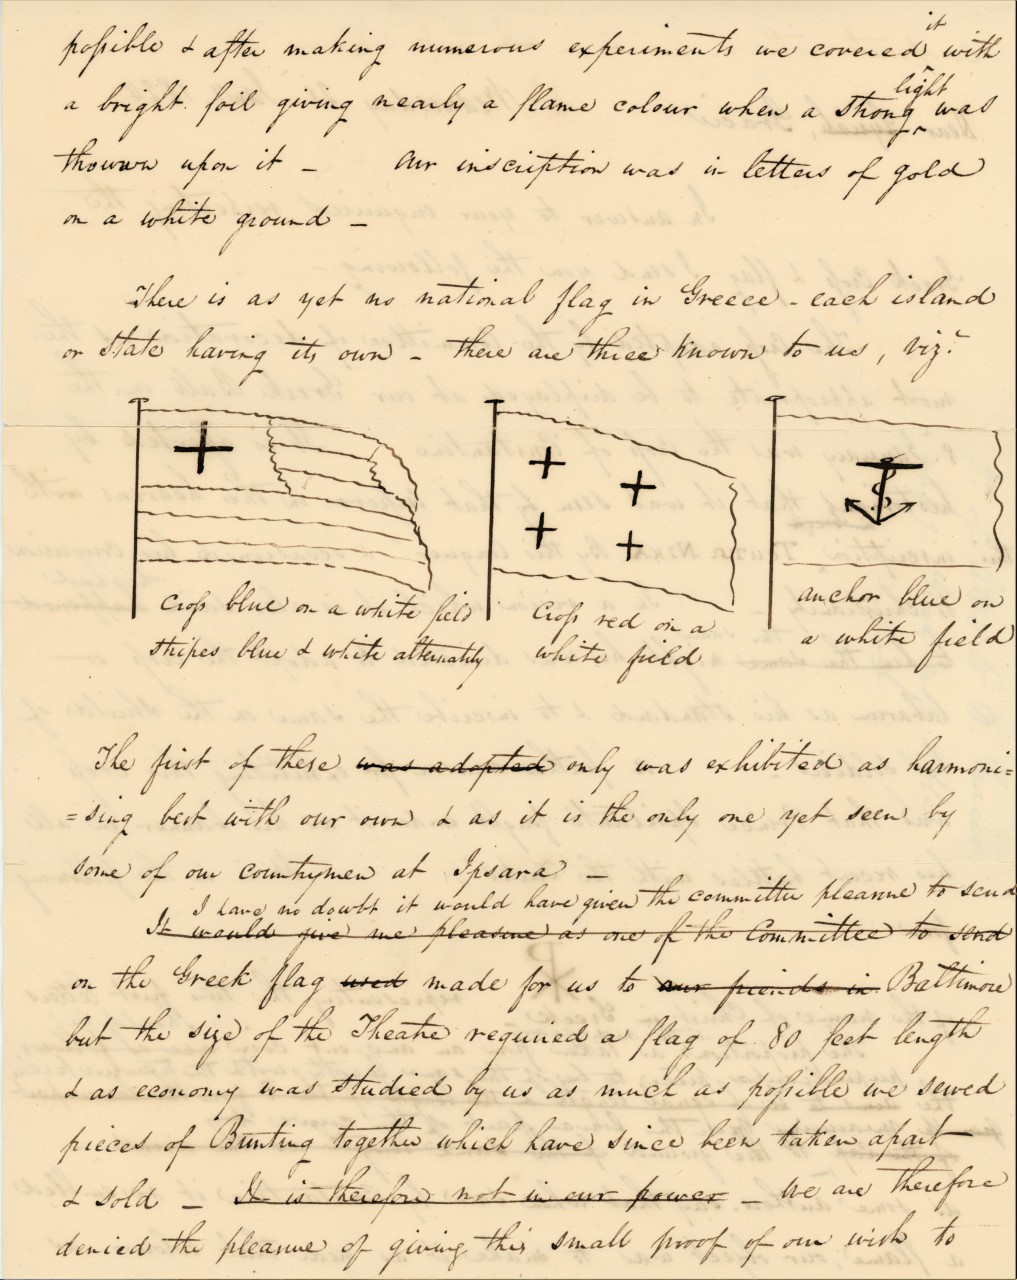 possible & after making numerous experiments we covered it with
a bright foil giving nearly a flame colour when a strong light was
thowwn upon it – Our insciption was in letters of gold
on a white ground –
There is as yet no national flag in Greece – each island
or State having its own – there are three known to us, viz.
Cross blue on a white field
stripes blue & white alternately
Cross red on a
white field
anchor blue on
a white field
The first of these was adopted only was exhibited as harmoni=
=sing best with our own & as it is the only one yet seen by
some of our countrymen at Ipsara –
I have no doubt it would have given the committee pleasure to send
It would give me pleasure as one of the Committee to send
on the Greek flag used made for us to our friends in Baltimore
but the size of the Theatre required a flag of 80 feet length
& as economy was studied by us as much as possible we sewed
pieces of Bunting together which have since been taken apart
& sold – It is therefore not in our power – We are therefore
denied the pleasure of giving this small proof of our wish to